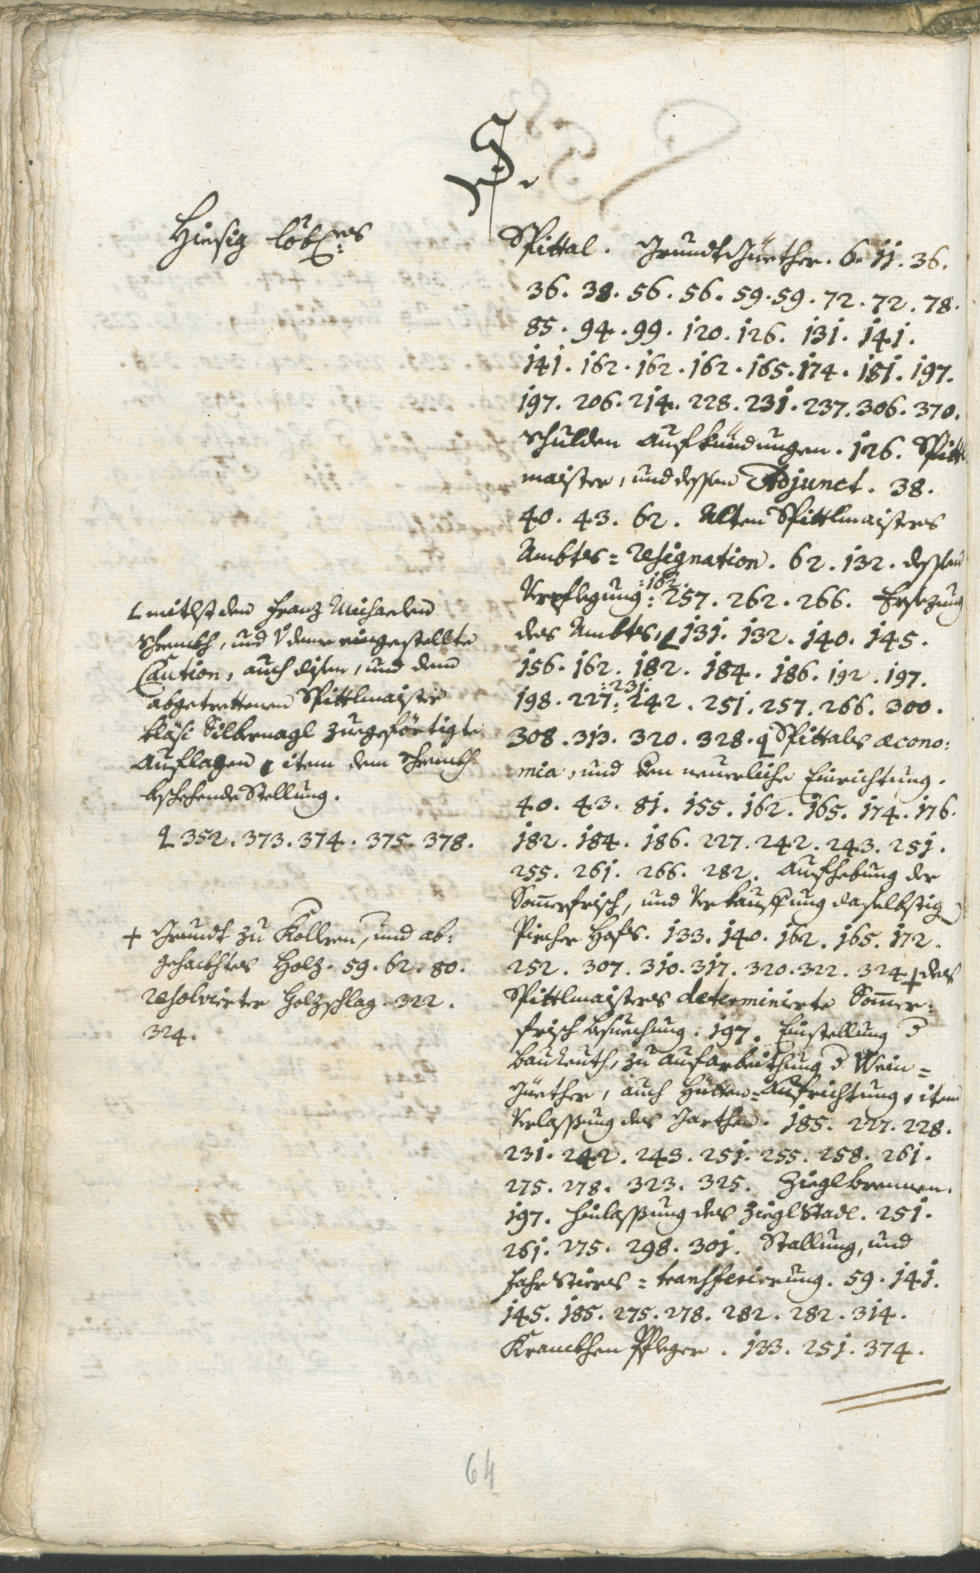 S.
Hiesig löbl:es
Spittal. Grundt Güether. 6. 11. 36.
36. 38. 56. 56. 59. 59. 72. 72. 78.
85. 94. 99. 120. 126. 131. 141.
141. 162. 162. 162. 165. 174. 181. 197.
197. 206. 214. 228. 231. 237. 306. 370.
Schulden Aufkündungen. 126. Spittl
maister, und dessen Adjunct. 38.
40. 43. 62. Alten Spittlmaisters
Ambts= resignation. 62. 132. dessen
Verpflegung :162: 257. 262. 266. Ersezung
des Ambts, L 131. 132. 140. 145.
156. 162. 182. 184. 186. 192. 197.
198. 227. :231: 242. 251. 257. 266. 300.
308. 313. 320. 328. Spittals œcono:
mia, und den neuerliche Einrichtung.
40. 43. 81. 155. 162. 165. 174. 176.
182. 184. 186. 227. 242. 243. 251.
255. 261. 266. 282. Aufhebung der
Som̄erfrisch, und Verkauffung daselbstig
Pircher Hofs. 133. 140. 162. 165. 172.
252. 307. 310. 317. 320. 322. 324. + des
Spittlmaisters determinirte Som̄er:
frisch besuechung. 197. Einstellung
Bauleuth, zu aufarbeithung Wein=
Güether, auch Hütten= Aufrichtung, item
Verlassung des Garthen. 185. 227. 228.
231. 242. 243. 251. 255. 258. 261.
275. 278. 323. 325. Zieglbrennen.
197. Hinlassung des Ziegl Stadl. 251.
261. 275. 298. 301. Stallung, und
Fahr Stiers= transferierung. 59. 141.
145. 185. 275. 278. 282. 282. 314.
Kranckhen Pfleger. 133. 251. 374.
L mitlst den Franz Michaelen
Schenkh, und eingestellte
Caution, auch disen, und dem
abgetrettenen Spittlmaister
Bläsi Silbernagl zuegeförtigte
Auflagen, item dem Schenkh
beschehende Stellung.
352. 373. 374. 375. 378.
+ Grundt zu Kollern, und ab:
gehackhtes Holz. 59. 62. 80.
resolvirter Holzschlag. 322.
324.
64